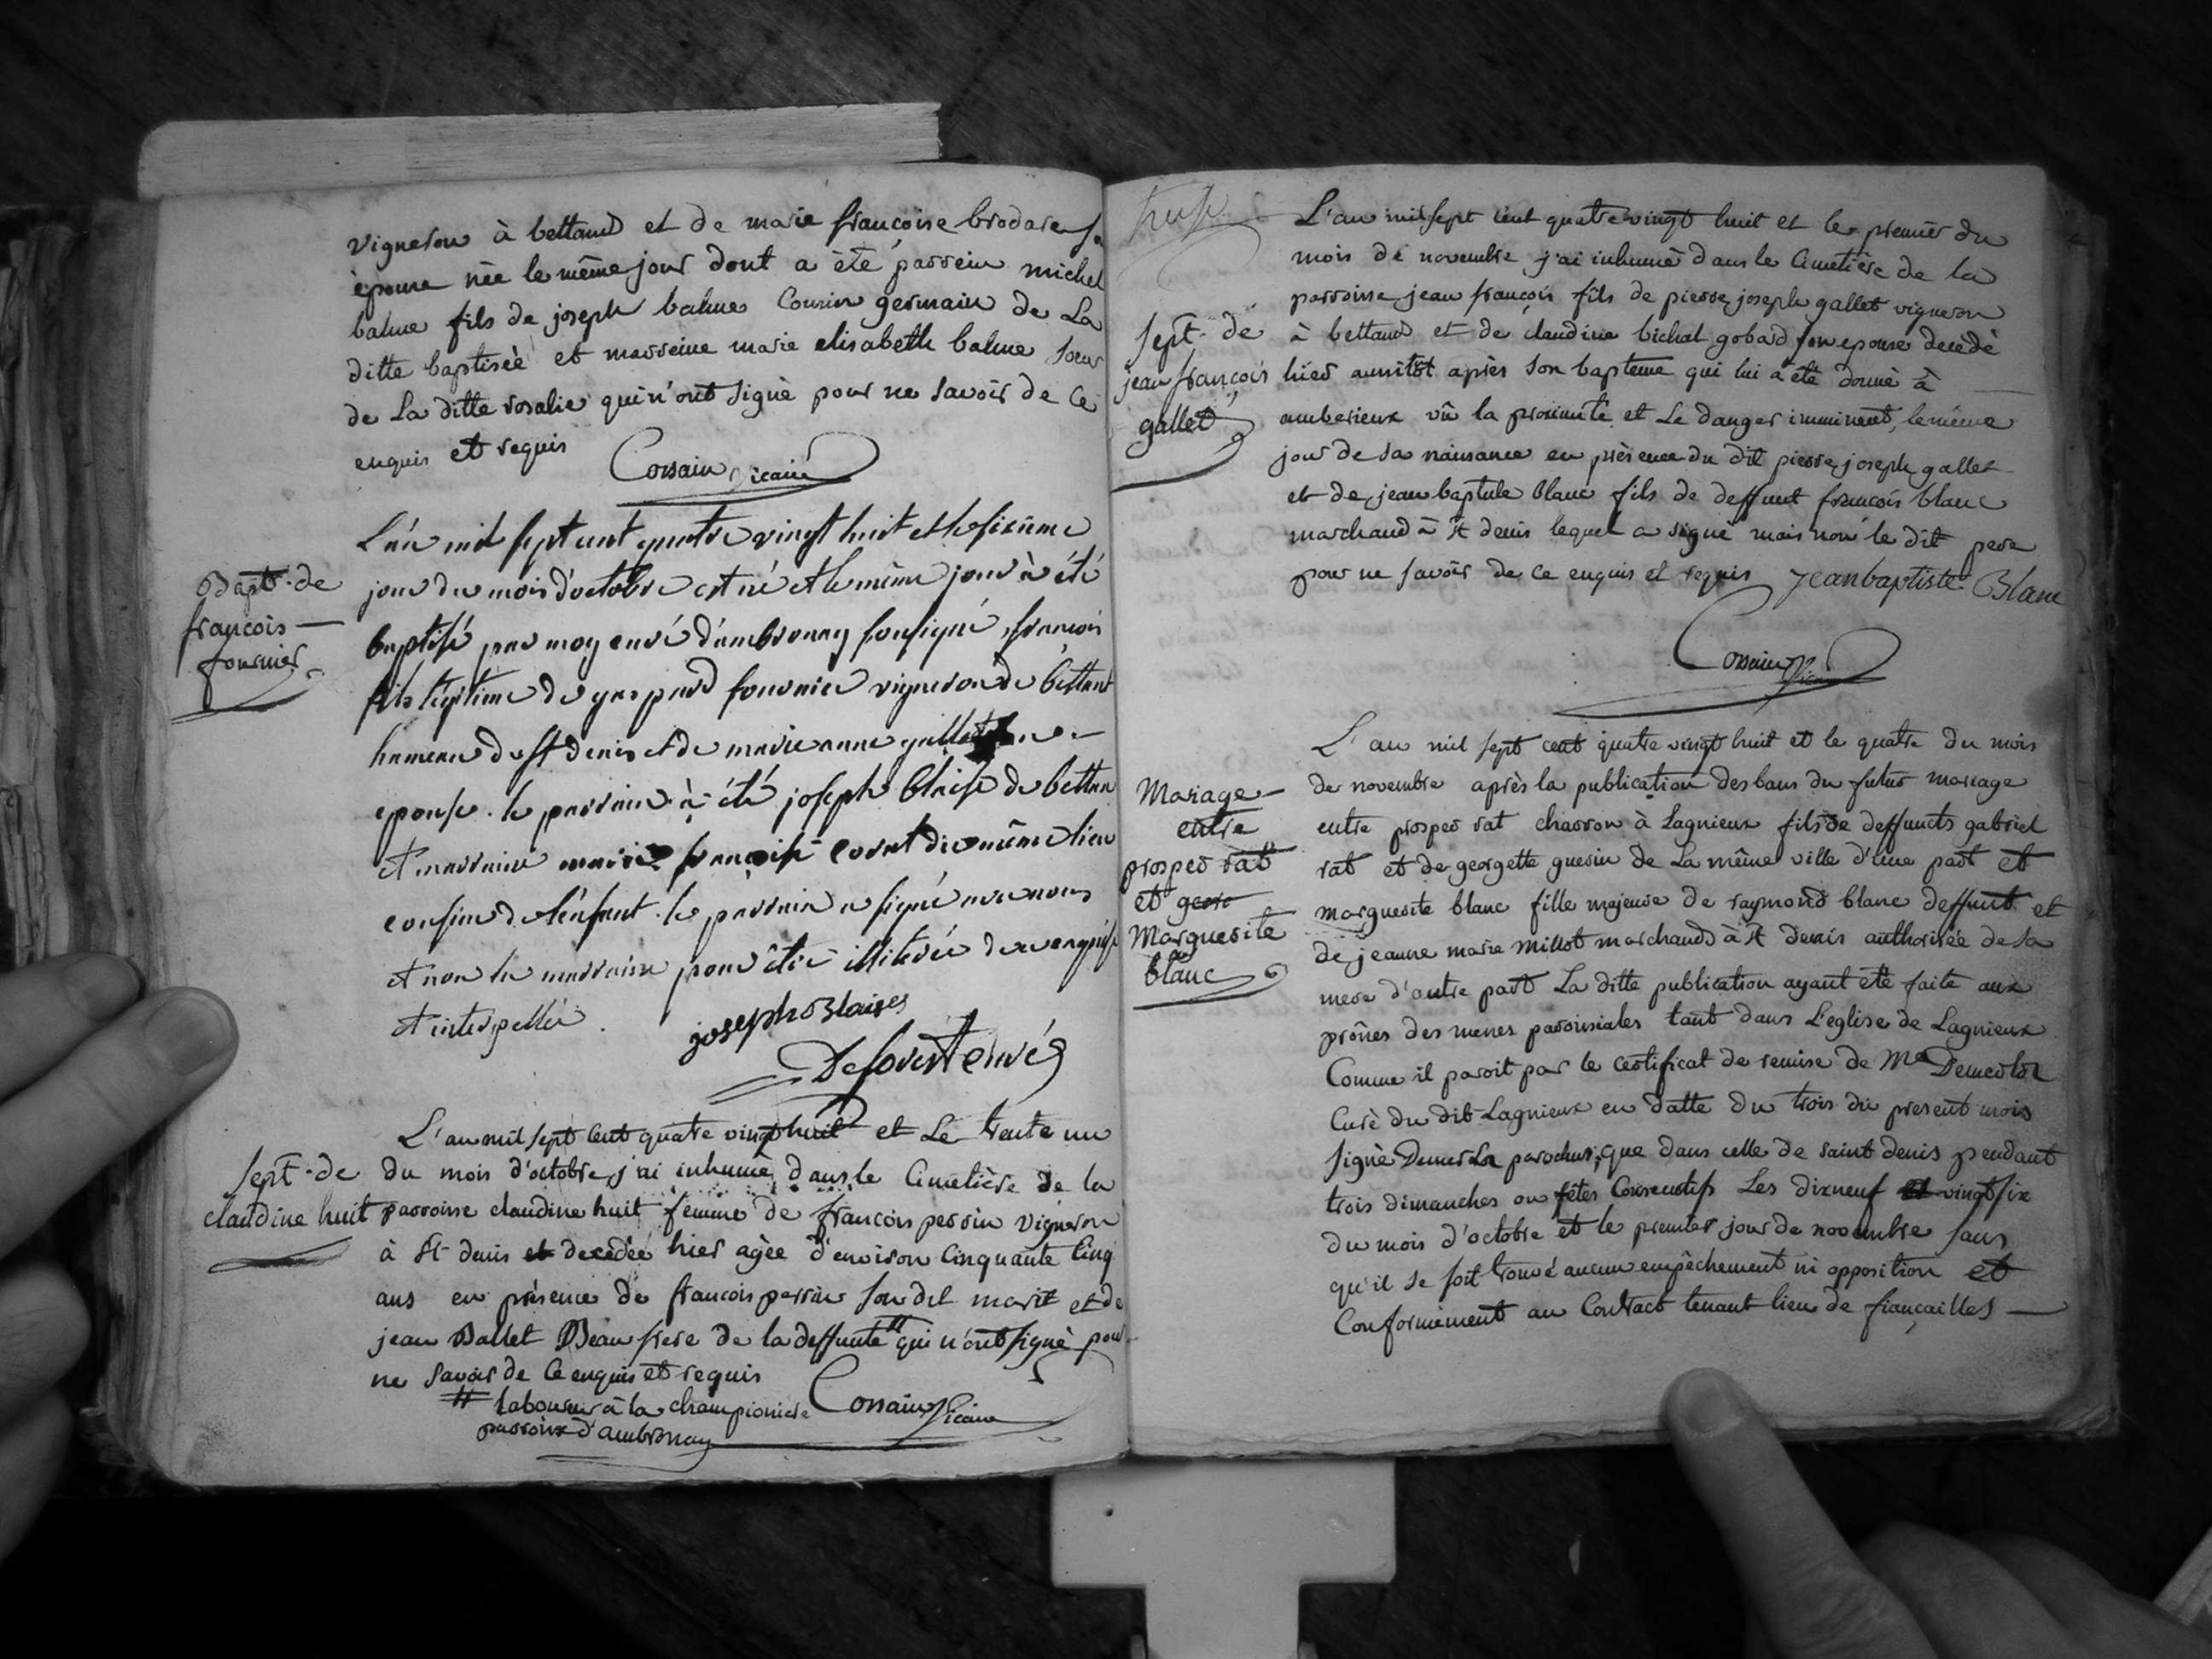 vigneron à bettand et de marie françoise brodare sa
èpouse née le même jour dont a été parrein michel
balme fils de joseph balme Cousin germain de La
ditte baptiseè et marreine marie elisabeth balme sœur
de La ditte rosalie qui n'ont signè pour ne savoir de ce
enquis et requis
Corsain vicaire
L'an mil sept cent quatre vingt huit et le sixieme
Bapt. de
françois
fournier
jour du mois d'octobre est né et le même jour à été
baptisé par moy curé d'ambronay soussigné, françois
fils légitime de gaspard fournier vigneron de bettant
hameau de st denis et de marie anne gallet
epouse. le parrain à été joseph blaise de bettan
et marraine marie françoise corat du même lieu
cousine de l'enfant. le parrain a signé avec nous
et non la marraine pour être illiterée de ce enquise
et interpellée.
joseph Blaises
Desovert curé
L'an mil sept cent quatre vingt huit et Le trente un
Sept. de
claudine huit
du mois d'octobre j'ai inhumè dans le Cimetière de la
parroisse claudine huit femme de françois perrin vigneron
à St denis et decedeé hier agèe d'environ Cinquante Cinq
ans en présence de françois perrin son dit marit et de
jean Ballet Beau frere de la deffunte # qui n'ont signè pour
ne savoir de ce enquis et requis
# laboureur à la championiere
parroisse d'ambronay
Corsain Vicaire
L'an mil sept cent quatre vingt huit et le premier du
mois de novembre j'ai inhumè dans le Cimetière de la
parroisse jean françois fils de pierre joseph gallet vigneron
Sept. de
jean françois
gallet
à bettand et de claudine bichat gobard son epouse decèdè
hier aussitot après son bapteme qui lui a étè donnè à
amberieux vû la proximitè et Le danger imminent, le même
jour de sa naissance en prèsence du dit pierre joseph gallet
et de jean baptiste blanc fils de deffunt françois blanc
marchand à St denis lequel a signè mais non le dit pere
pour ne savoir de ce enquis et requis jean baptiste Blanc
Corsain Vicaire
L'an mil sept cent quatre vingt huit et le quatre du mois
de novembre après la publication des bans du futur mariage
Mariage
entre
prosper rat
et geor
Marguerite
blanc
entre prosper rat charron à Lagnieux fils de deffuncts gabriel
rat et de georgette guerin de La même ville d'une part et
marguerite blanc fille majeure de raymond blanc deffunt et
de jeanne marie millot marchands à St denis authorisée de sa
mere d'autre part La ditte publication ayant été faite aux
prônes des messes paroissiales tant dans L'eglise de Lagnieux
Comme il paroit par le certificat de remise de Mre
Curè du dit Lagnieux en datte du trois du present mois
signè parochus, que dans celle de saint denis pendant
trois dimanches ou fêtes Consecutifs Les dixneuf et vingt six
du mois d'octobre et le premier jour de novembre sans
qu'il se soit trouvé aucun empêchement ni opposition et
Conformèment au Contract tenant lieu de fiançailles